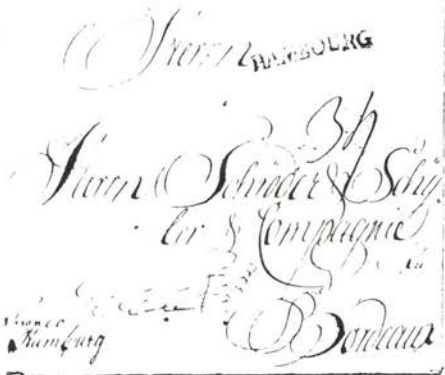 Herrn HAMBOURG
Herrn Schröder & Schÿ
ler & Compagnie
Bordeaux
Franco
Hamburg